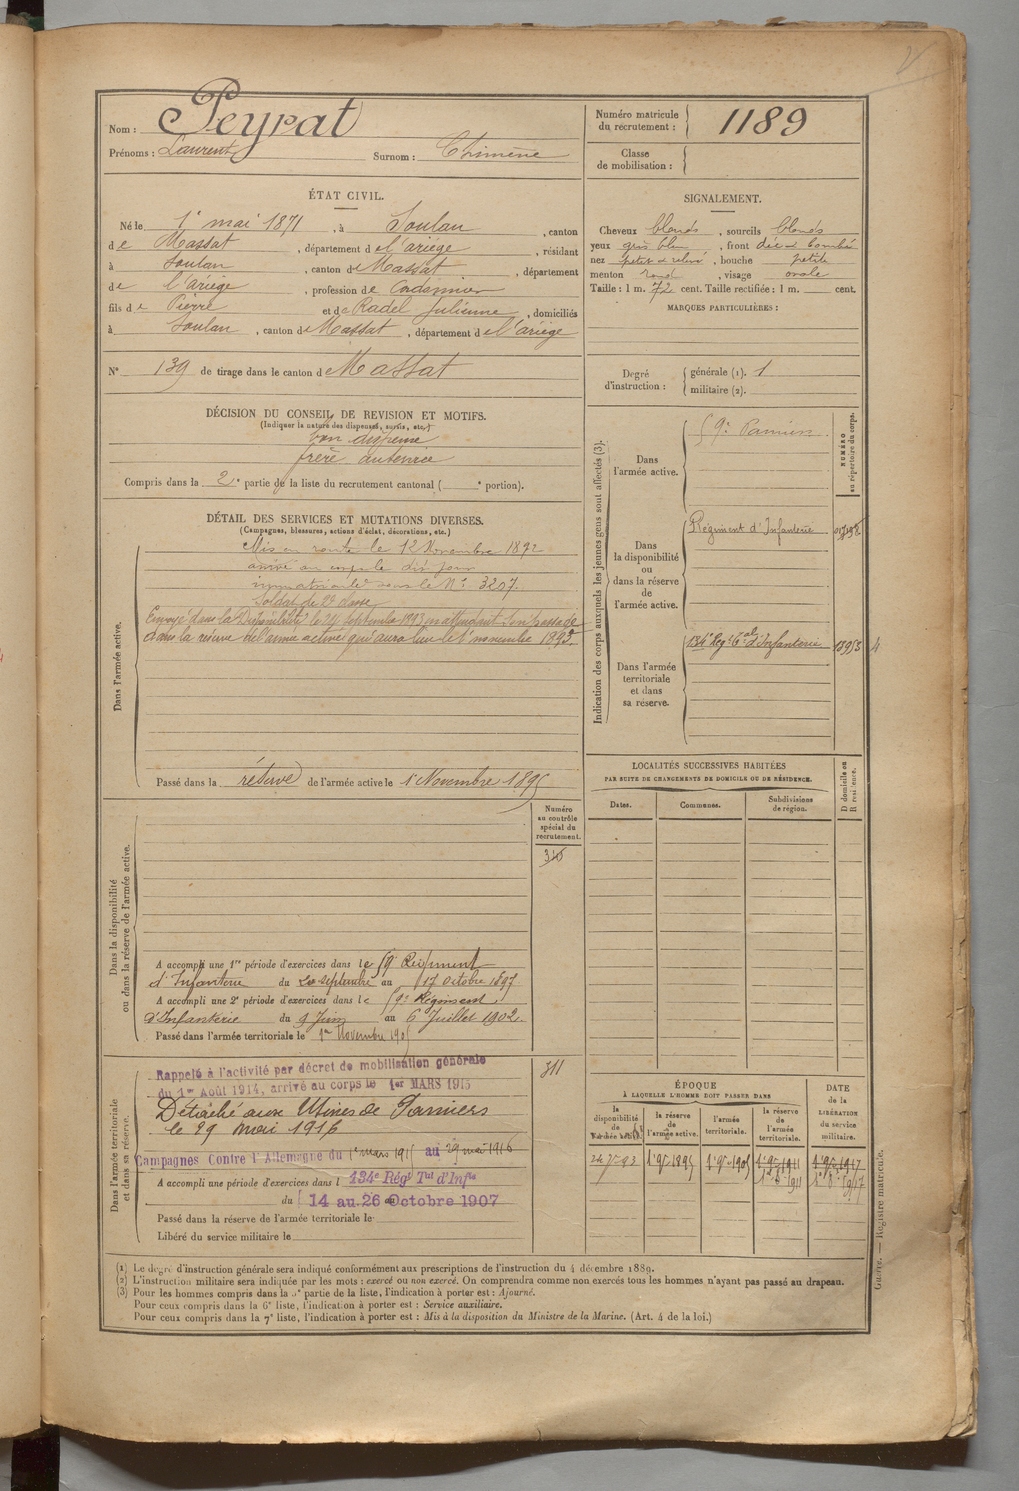 Nom : Peyrat
Prénoms : Laurent Surnom : Chimène
Numéro matricule du recrutement : 1189
Classe de mobilisation :
ÉTAT CIVIL.
Né le 1er mai 1871, à Soulan, canton
de Massat, département de l'ariège, résidant
à Soulan, canton de Massat, département
de l'ariège, profession de Cordonnier
fils de Pierre et de Radel Julienne, domiciliés
à Soulan, canton de Massat, département de l'ariège
N° 139 de tirage dans le canton de Massat
SIGNALEMENT.
Cheveux blonds, sourcils blonds
yeux gris bleu, front déc. & bombé
nez petit & relevé, bouche petite
menton rond, visage ovale
Taille : 1 m. 72 cent. Taille rectifiée : 1 m. cent.
MARQUES PARTICULIÈRES :
Degré d'instruction : générale (1). 1
militaire (2).
DÉCISION DU CONSEIL DE REVISION ET MOTIFS.
(Indiquer la nature des dispenses, sursis, etc.)
bon dispense
frère
Compris dans la 2e partie de la liste du recrutement cantonal ( e portion).
DÉTAIL DES SERVICES ET MUTATIONS DIVERSES.
(Campagnes, blessures, actions d'éclat, décorations, etc.)
Dans l'armée active.
Mis en route le 12 Novembre 1892
arrivé au corps le dit jour
immatriculé sous le N° 3207.
Soldat de 2e classe
Envoyé dans la Disponibilité le 24 septembre 1893 en attendant son passage
dans la réserve de l'armée active qui aura lieu le 1er novembre 1895.
Passé dans la réserve de l'armée active le 1er Novembre 1895
Indication des corps auxquels les jeunes gens sont affectés (3).
NUMÉRO au répertoire du corps.
Dans l'armée active.
59e Pamiers
Dans la disponibilité ou dans la réserve de l'armée active.
Régiment d'Infanterie
Dans l'armée territoriale et dans sa réserve.
134e Régt Tal d'Infanterie 13953
LOCALITÉS SUCCESSIVES HABITÉES
PAR SUITE DE CHANGEMENTS DE DOMICILE OU DE RÉSIDENCE.
D domicile ou R résidence.
Dates. Communes. Subdivisions de région.
Dans la disponibilité ou dans la réserve de l'armée active.
Numéro au contrôle spécial du recrutement.
A accompli une 1re période d'exercices dans le 59e Régiment
d'Infanterie du 20 septembre au 17 octobre 1897
A accompli une 2e période d'exercices dans le 59e Régiment
d'Infanterie du 9 Juin au 6 Juillet 1902.
Passé dans l'armée territoriale le 1er Novembre 1905
Dans l'armée territoriale et dans sa réserve.
311
Rappelé à l'activité par décret de mobilisation générale
du 1er Août 1914, arrivé au corps le 1er MARS 1915
Détaché aux Usines de Pamiers
le 29 mai 1916
Campagnes Contre l'Allemagne du 1 mars 1915 au 29 mai 1916
A accompli une période d'exercices dans l 134e Régt Tal d'Infie
du 14 au 26 Octobre 1907
Passé dans la réserve de l'armée territoriale le
Libéré du service militaire le
ÉPOQUE
À LAQUELLE L'HOMME DOIT PASSER DANS
la disponibilité de l'armée active.
la réserve de l'armée active.
l'armée territoriale.
la réserve de l'armée territoriale.
DATE de la LIBÉRATION du service militaire.
24 7bre 93 1er 9bre 1895 1er 9bre 1905 1er 9bre 1911 1er 9bre 1917
Guerre. — Registre matricule.
(1) Le degré d'instruction générale sera indiqué conformément aux prescriptions de l'instruction du 4 décembre 1889.
(2) L'instruction militaire sera indiquée par les mots : exercé ou non exercé. On comprendra comme non exercés tous les hommes n'ayant pas passé au drapeau.
(3) Pour les hommes compris dans la 5e partie de la liste, l'indication à porter est : Ajourné.
Pour ceux compris dans la 6e liste, l'indication à porter est : Service auxiliaire.
Pour ceux compris dans la 7e liste, l'indication à porter est : Mis à la disposition du Ministre de la Marine. (Art. 4 de la loi.)